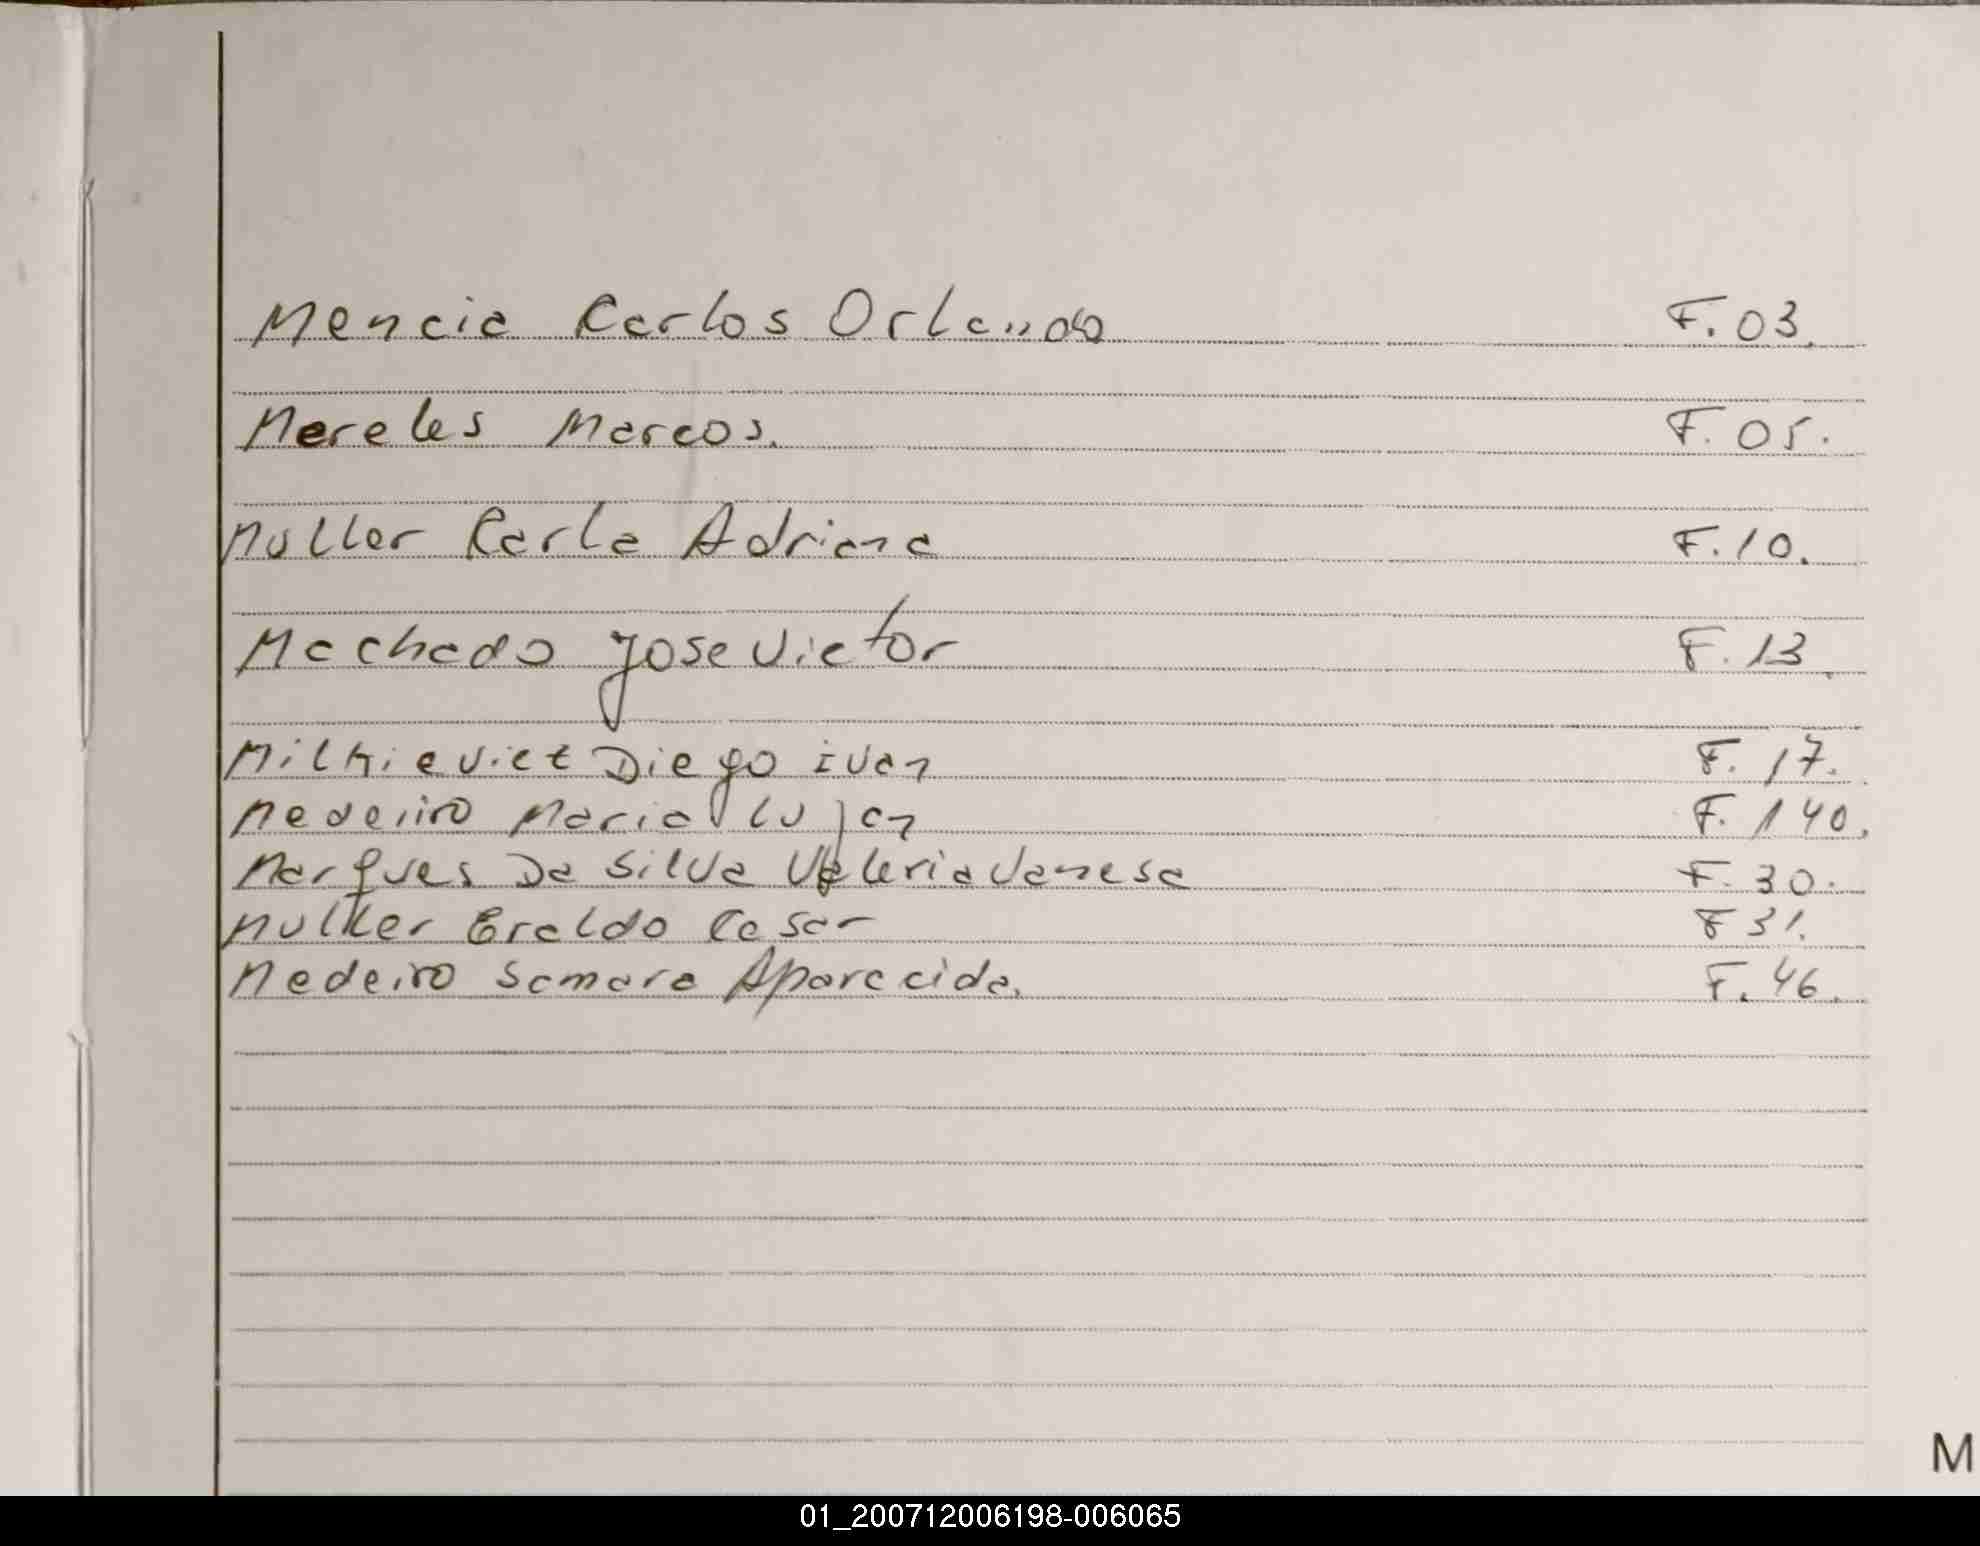 Mencia Carlos Orlando F. 03.
Mereles Marcos. F. 05.
Muller Carla Adriana F. 10.
Machado Jose Victor F. 13.
Milkieviet Diego ivan F. 17.
Medeiro Maria Lujan F. 140.
Marques Da Silva Valeria Vanesa F. 30.
Muller Eraldo Cesar F 31.
Medeiro Samara Aparecida. F. 46.
M
01_200712006198-006065